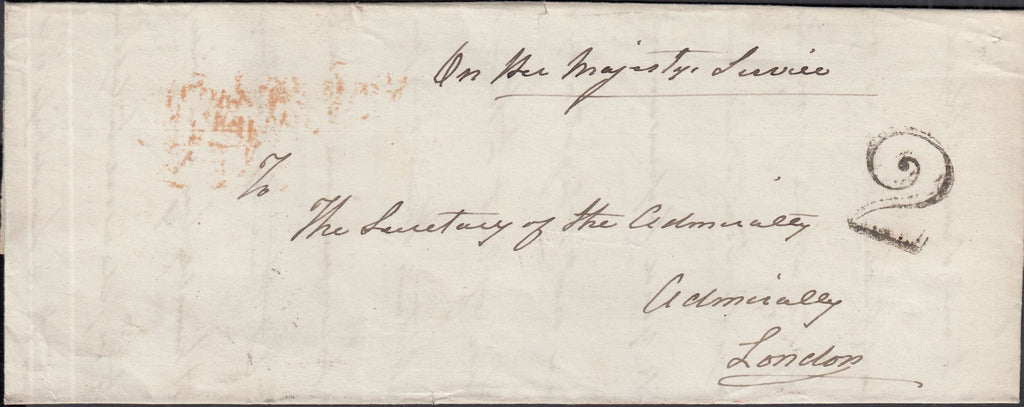 On Her Majestys Service
To
The Secretary of the Admiralty
2
Admiralty
London